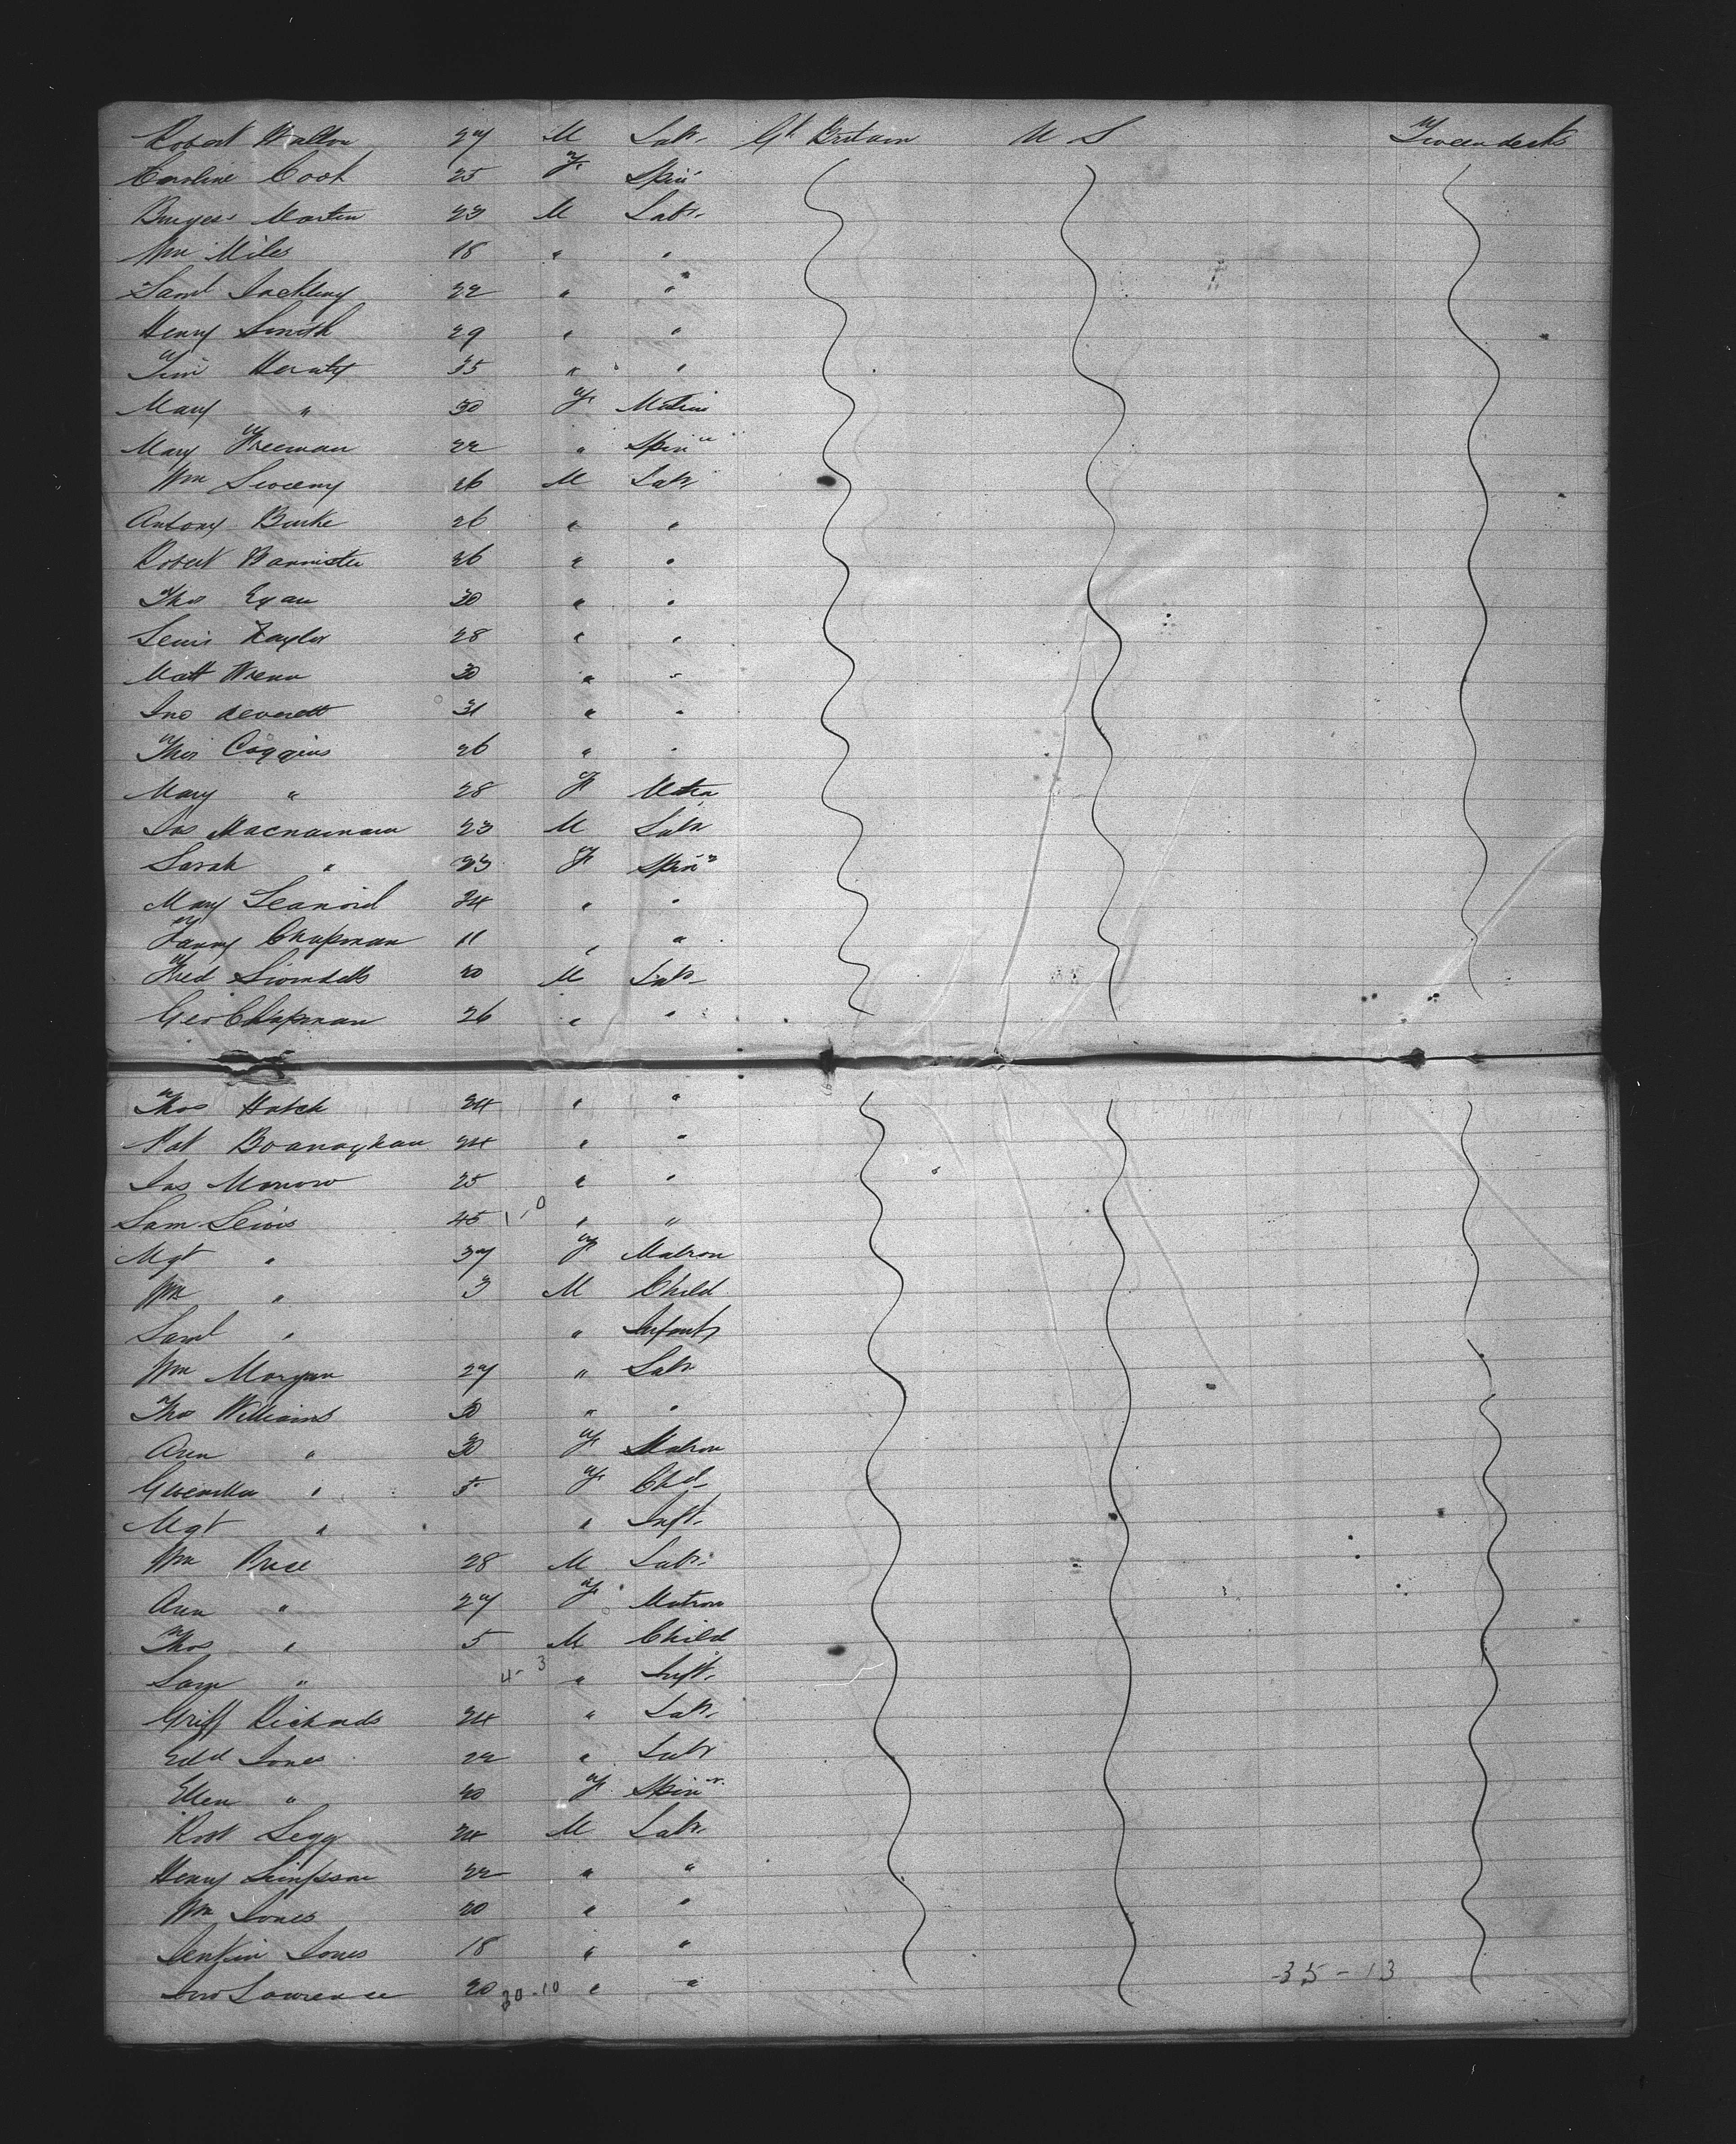 Robert Walton 27 M Labr Gt Britain U S Tweendecks
Caroline Cook 25 F Spinr
Burgess Martin 23 M Labr
Wm Miles 18 " "
Saml 22 " "
Henry Smith 29 " "
Tim 35 " "
Mary " 30 F
Mary Freeman 22 " Spinr
Wm Sweeny 26 M Labr
Antony Burke 26 " "
Robert Bannister 26 " "
Thos Egan 30 " "
Lewis Taylor 28 " "
Matt Wrenn 30 " "
Jno 31 " "
Thos Coggins 26 " "
Mary " 28 F Matrn
Jas Macnamara 23 M Labr
Sarah " 23 F Spinr
Mary 24 " "
Fanny Chapman 11 " "
Fred 20 M Labr
Geo Chapman 26 " "
Thos Hatch 24 " "
Pat 24 " "
Jas Morrow 25 " "
Sam Lewis 45 1-0 " "
Mgt " 37 F Matron
Wm " 3 M Child
Saml " " Infant
Wm Morgan 27 " Labr
Thos Williams 30 " "
Ann " 30 F Matron
" 5 F Chd
Mgt " " Inft.
Wm Price 28 M Labr
Ann " 27 F Matron
Thos " 5 M Child
Sam " 4-3 " Inft.
Griff Richards 24 " Labr
Edd Jones 22 " Labr
Ellen " 20 F Spinr
Robt Legg 24 M Labr
Henry Simpson 22 " "
Wm Jones 20 " "
Jenkin Jones 18 " "
Jno Lawrence 20 30-10 " " 35-13